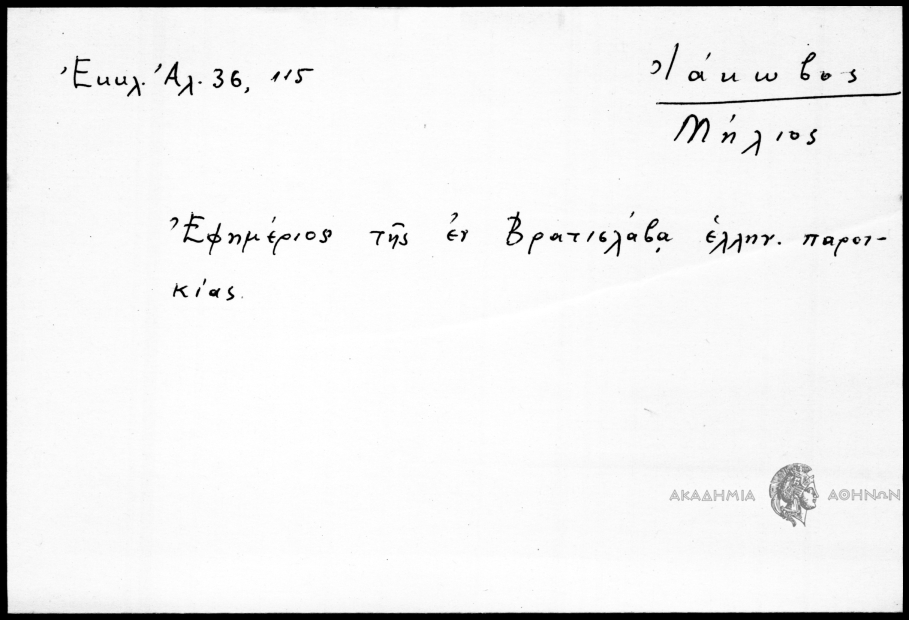 Ἐκκλ. Ἀλ. 36, 115
Ἰάκωβος
Μήλιος
Ἐφημέριος τῆς ἐν Βρατισλάβᾳ ἑλλην. παροι-
κίας.
ΑΚΑΔΗΜΙΑ ΑΘΗΝΩΝ